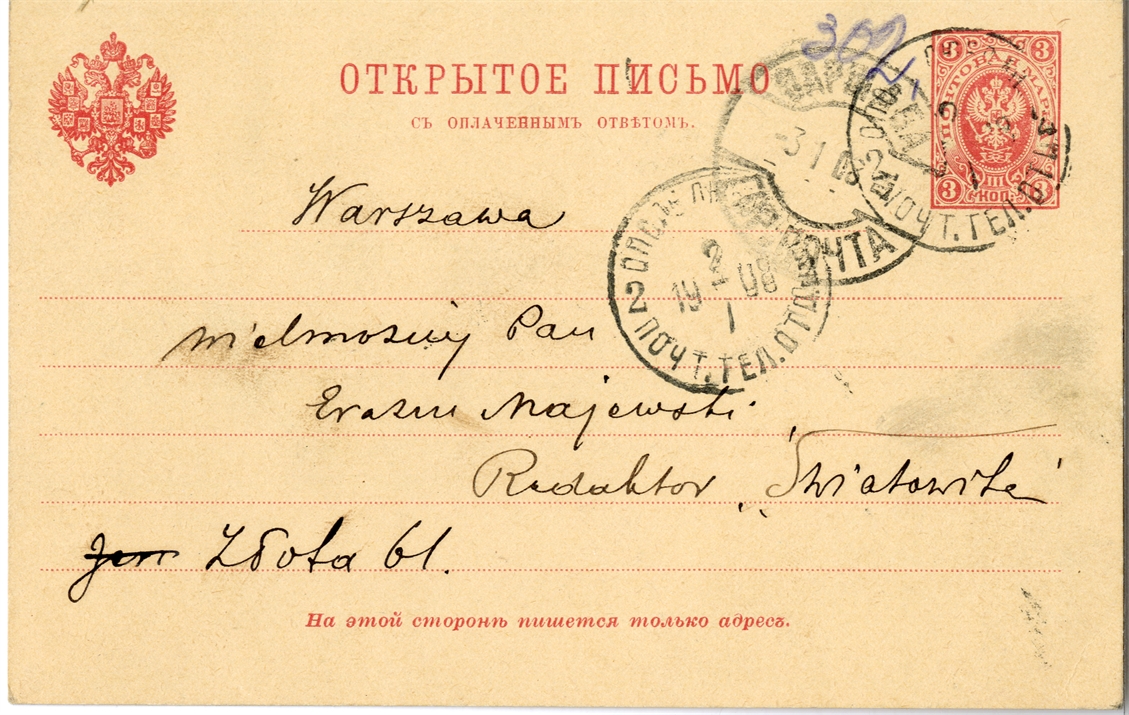 302
ОТКРЫТОЕ ПИСЬМО
СЪ ОПЛАЧЕННЫМЪ ОТВѢТОМЪ.
3 3
ПОЧТОВАЯ МАРКА
3 III КОП. 3
ВАРШАВА
3 1 08
ПОЧТА
2 ПОЧТ. ТЕЛ. ОТД.
2
1908
1
2 ПОЧТ. ТЕЛ. ОТД.
Warszawa
Wielmożny Pan
Erazm Majewski
Redaktor „Światowita”
Złota 61.
На этой сторонѣ пишется только адресъ.